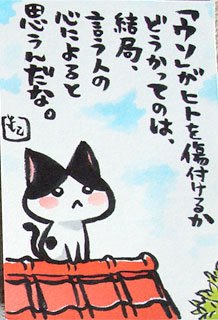 「ウソ」がヒトを傷付けるか
どうかってのは、
結局、
言う人の
心によると
思うんだな。